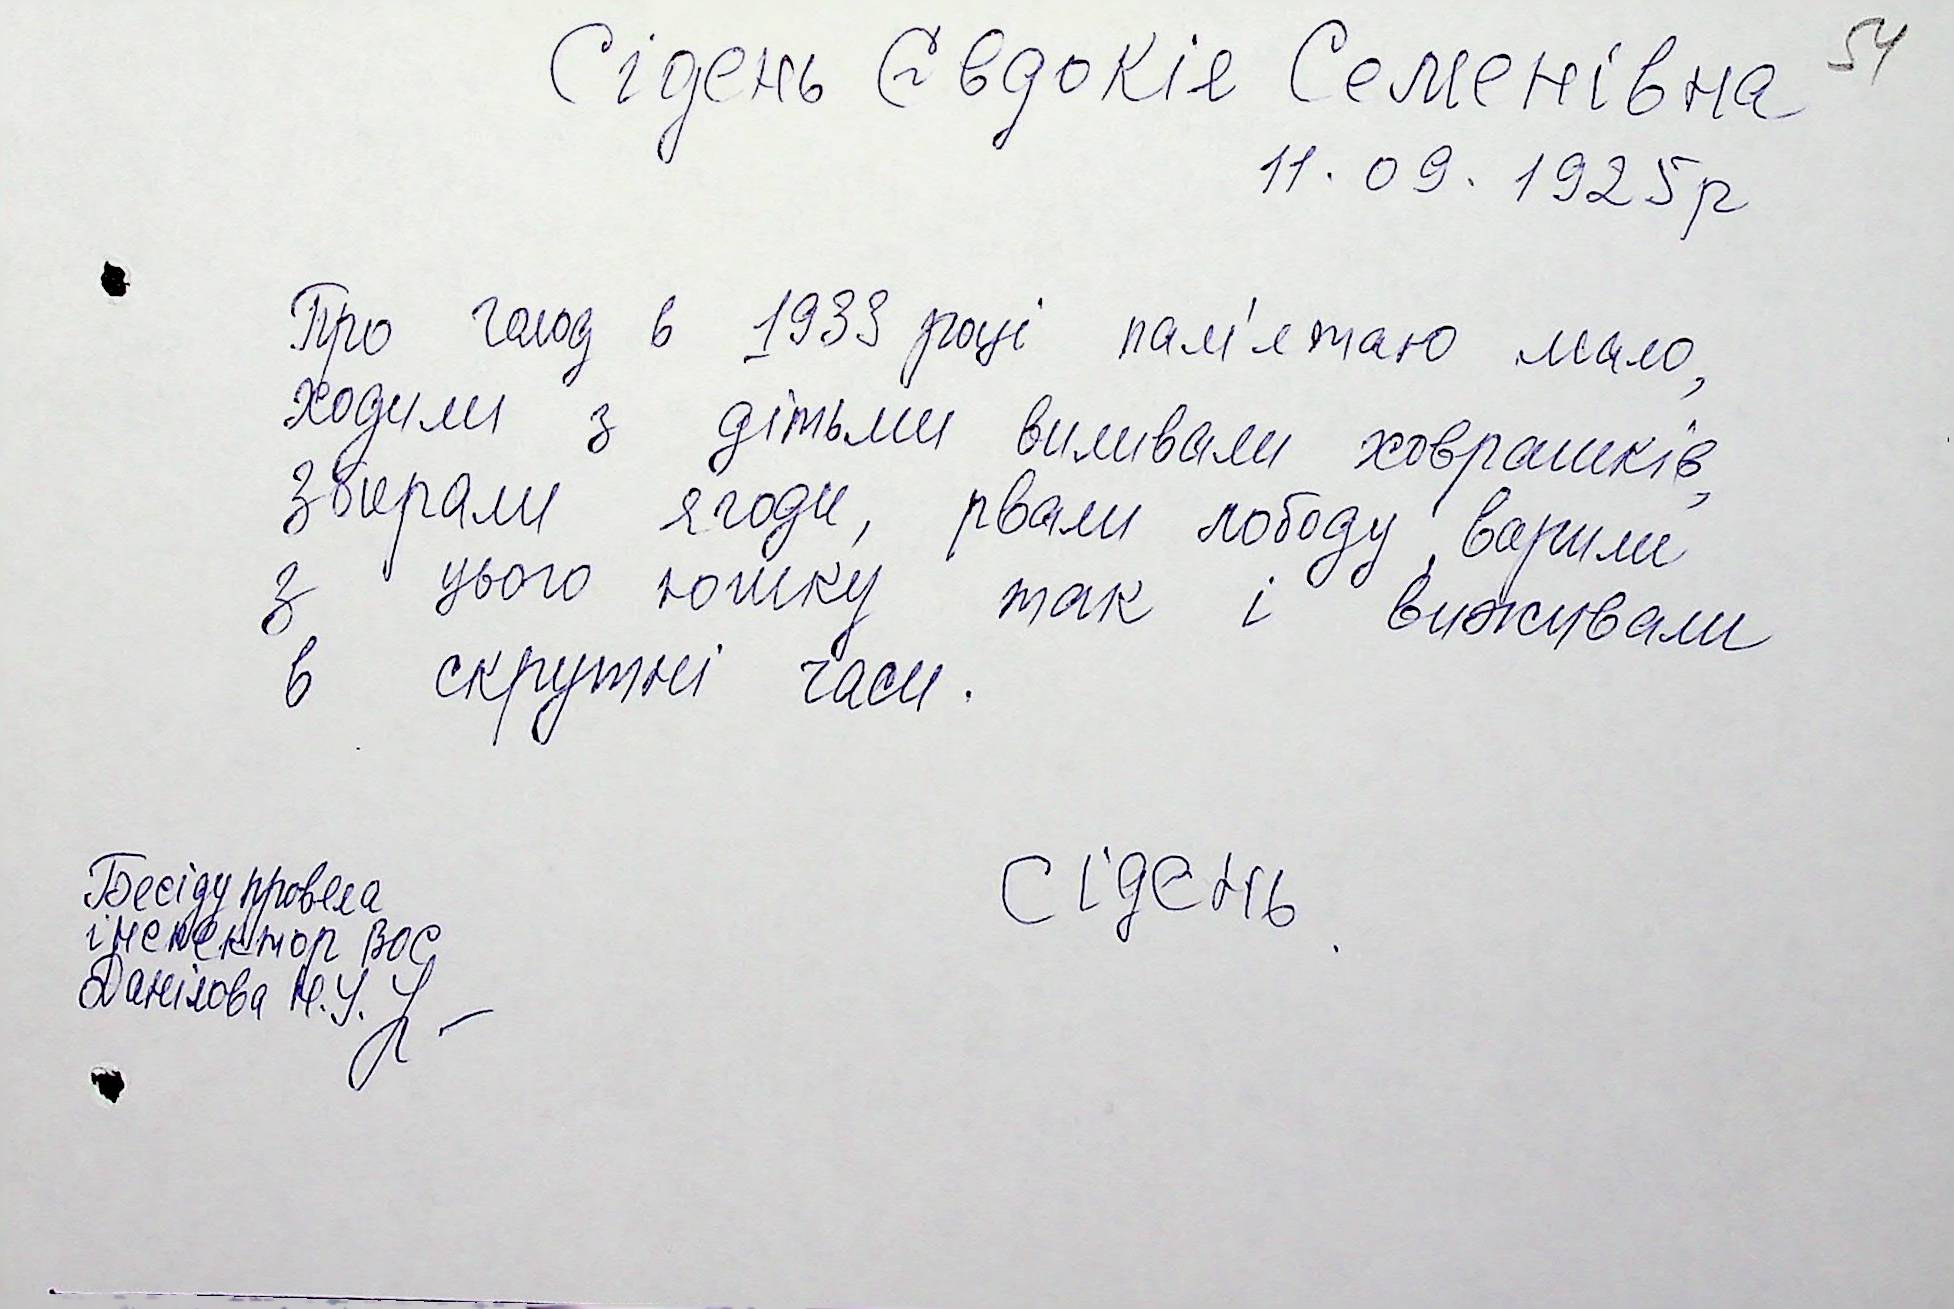 54
Сідень Євдокія Семенівна
11.09.1925р
Про голод в 1933 році пам'ятаю мало,
ходили з дітьми виливали ховрашків,
збирали ягоди, рвали лободу, варили
з цього юшку так і виживали
в скрутні часи.
Сідень.
Бесіду провела
інспектор ВОС
Данілова Н.У.